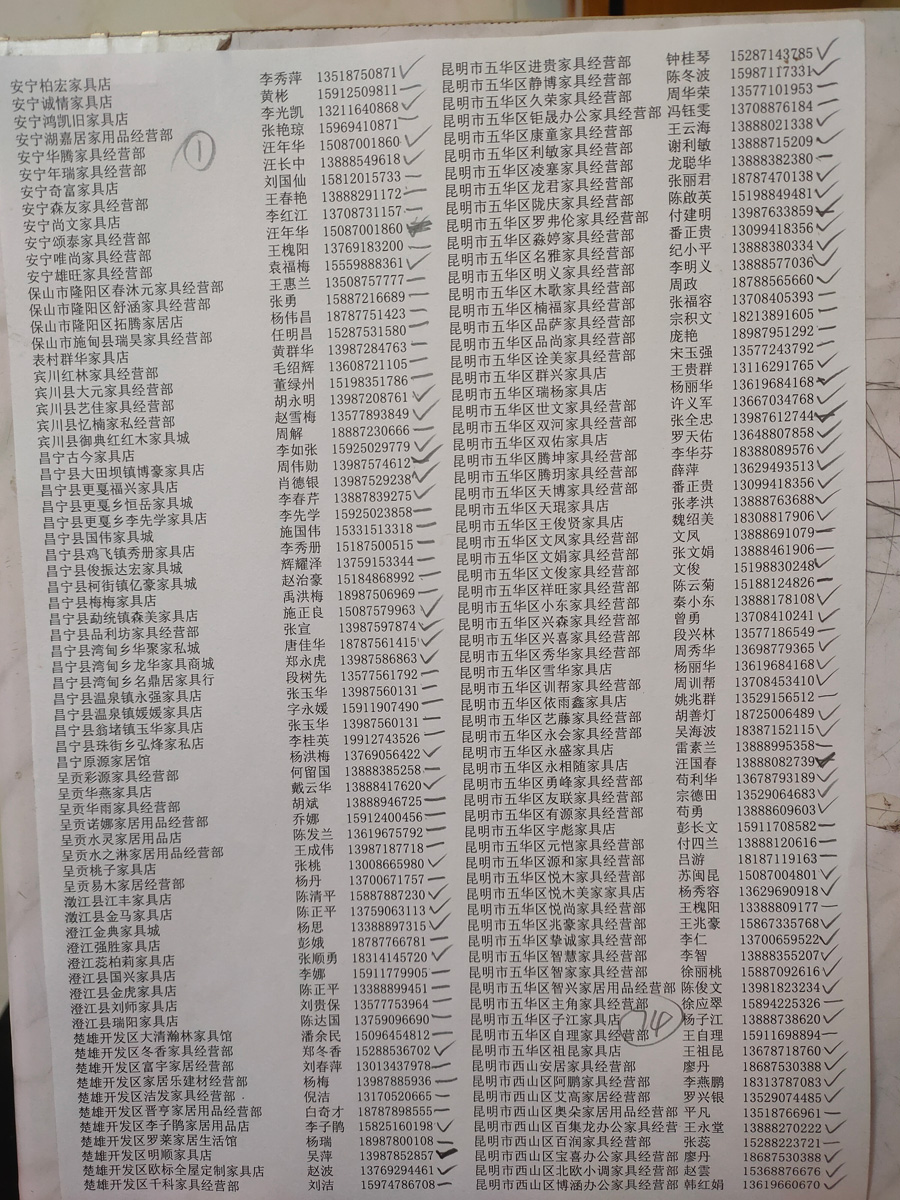 安宁柏宏家具店 李秀萍 13518750871
安宁诚情家具店 黄彬 15912509811
安宁鸿凯旧家具店 李光凯 13211640868
安宁湖嘉居家用品经营部 张艳琼 15969410871
安宁华腾家具经营部 汪年华 15087001860
①
安宁年瑞家具经营部 汪长中 13888549618
安宁奇富家具店 刘国仙 15812015733
安宁森友家具经营部 王春艳 13888291172
安宁尚文家具店 李红江 13708731157
安宁颂泰家具经营部 汪年华 15087001860
安宁唯尚家具经营部 王槐阳 13769183200
安宁雄旺家具经营部 袁福梅 15559888361
保山市隆阳区春沐元家具经营部 王惠兰 13508757777
保山市隆阳区舒涵家具经营部 张勇 15887216689
保山市隆阳区拓腾家居店 杨伟昌 18787751423
保山市施甸县瑞昊家具经营部 任明昌 15287531580
表村群华家具店 黄群华 13987284763
宾川红林家具经营部 毛绍辉 13608721105
宾川县大元家具经营部 董绿州 15198351786
宾川县艺佳家具经营部 胡永明 13987208761
宾川县忆楠家私经营部 赵雪梅 13577893849
宾川县御典红红木家具城 周解 18887230666
昌宁古今家具店 李如张 15925029779
昌宁县大田坝镇博豪家具店 周伟勋 13987574612
昌宁县更戛福兴家具店 肖德银 13987529238
昌宁县更戛乡恒岳家具城 李春芹 13887839275
昌宁县更戛乡李先学家具店 李先学 15925023858
昌宁县国伟家具城 施国伟 15331513318
昌宁县鸡飞镇秀册家具店 李秀册 15187500515
昌宁县俊振达宏家具城 辉耀泽 13759153344
昌宁县柯街镇亿豪家具城 赵治豪 15184868992
昌宁县梅梅家具店 禹洪梅 18987506969
昌宁县勐统镇森美家具店 施正良 15087579963
昌宁县品利坊家具经营部 张宣 13987597874
昌宁县湾甸乡华聚家私城 唐佳华 18787561415
昌宁县湾甸乡龙华家具商城 郑永虎 13987586863
昌宁县湾甸乡名鼎居家具行 段树先 13577561792
昌宁县温泉镇永强家具店 张玉华 13987560131
昌宁县温泉镇媛媛家具店 字永媛 15911907490
昌宁县翁堵镇玉华家具店 张玉华 13987560131
昌宁县珠街乡弘烽家私店 李桂英 19912743526
昌宁原源家居馆 杨洪梅 13769056422
呈贡彩源家具经营部 何留国 13888385258
呈贡华燕家具店 戴云华 13888417620
呈贡华雨家具经营部 胡斌 13888946725
呈贡诺娜家居用品经营部 乔娜 15912400456
呈贡水灵家居用品店 陈发兰 13619675792
呈贡水之淋家居用品经营部 王成伟 13987187718
呈贡桃子家具店 张桃 13008665980
呈贡易木家居经营部 杨丹 13700671757
澂江县江丰家具店 陈清平 15887887230
澂江县金马家具店 陈正平 13759063113
澄江金典家具城 杨思 13388897315
澄江强胜家具店 彭娥 18787766781
澄江蕊柏莉家具店 张顺勇 18314145720
澄江县国兴家具店 李娜 15911779905
澄江县金虎家具店 陈正平 13388899451
澄江县刘师家具店 刘贵保 13577753964
澄江县瑞阳家具店 陈达国 13759096690
楚雄开发区大清瀚林家具馆 潘余民 15096454812
楚雄开发区冬香家具经营部 郑冬香 15288536702
楚雄开发区富宇家居经营部 刘春萍 13013437978
楚雄开发区家居乐建材经营部 杨梅 13987885936
楚雄开发区洁发家具经营部 倪洁 13170520665
楚雄开发区晋亨家居用品经营部 白奇才 18787898555
楚雄开发区李子鹃家居用品店 李子鹃 15825160198
楚雄开发区罗莱家居生活馆 杨瑞 18987800108
楚雄开发区明顺家具店 吴萍 13987852857
楚雄开发区欧标全屋定制家具店 赵波 13769294461
楚雄开发区千科家具经营部 刘洁 15974786708
昆明市五华区进贵家具经营部 钟桂琴 15287143785
昆明市五华区静博家具经营部 陈冬波 15987117331
昆明市五华区久荣家具经营部 周华荣 13577101953
昆明市五华区钜晟办公家具经营部 冯钰雯 13708876184
昆明市五华区康童家具经营部 王云海 13888021338
昆明市五华区利敏家具经营部 谢利敏 13888715209
昆明市五华区凌塞家具经营部 龙聪华 13888382380
昆明市五华区龙君家具经营部 张丽君 18787470138
昆明市五华区陇庆家具经营部 陈啟英 15198849481
昆明市五华区罗弗伦家具经营部 付建明 13987633859
昆明市五华区淼婷家具经营部 番正贵 13099418356
昆明市五华区名雅家具经营部 纪小平 13888380334
昆明市五华区明义家具经营部 李明义 13888577036
昆明市五华区木歌家具经营部 周政 18788565660
昆明市五华区楠福家具经营部 张福容 13708405393
昆明市五华区品萨家具经营部 宗积文 18213891605
昆明市五华区品尚家具经营部 庞艳 18987951292
昆明市五华区诠美家具经营部 宋玉强 13577243792
昆明市五华区群兴家具店 王贵群 13116291765
昆明市五华区瑞杨家具店 杨丽华 13619684168
昆明市五华区世文家具经营部 许义军 13667034768
昆明市五华区双河家具经营部 张全忠 13987612744
昆明市五华区双佑家具店 罗天佑 13648807858
昆明市五华区腾坤家具经营部 李华芬 18388089576
昆明市五华区腾玥家具经营部 薛萍 13629493513
昆明市五华区天博家具经营部 番正贵 13099418356
昆明市五华区天琨家具店 张孝洪 13888763688
昆明市五华区王俊贤家具店 魏绍美 18308817906
昆明市五华区文凤家具经营部 文凤 13888691079
昆明市五华区文娟家具经营部 张文娟 13888461906
昆明市五华区文俊家具经营部 文俊 15198830248
昆明市五华区祥旺家具经营部 陈云菊 15188124826
昆明市五华区小东家具经营部 秦小东 13888178108
昆明市五华区兴森家具经营部 曾勇 13708410241
昆明市五华区兴喜家具经营部 段兴林 13577186549
昆明市五华区秀华家具经营部 周秀华 13698779365
昆明市五华区雪华家具店 杨丽华 13619684168
昆明市五华区训帮家具经营部 周训帮 13708453410
昆明市五华区依雨鑫家具店 姚兆群 13529156512
昆明市五华区艺藤家具经营部 胡善灯 18725006489
昆明市五华区永会家具经营部 吴海波 18387152115
昆明市五华区永盛家具店 雷素兰 13888995358
昆明市五华区永相随家具店 汪国春 13888082739
昆明市五华区勇峰家具经营部 苟利华 13678793189
昆明市五华区友联家具经营部 宗德田 13529064683
昆明市五华区有源家具经营部 苟勇 13888609603
昆明市五华区宇彪家具店 彭长文 15911708582
昆明市五华区元恺家具经营部 付四兰 13888120616
昆明市五华区源和家具经营部 吕游 18187119163
昆明市五华区悦木家具经营部 苏闽昆 15087004801
昆明市五华区悦木美家家具店 杨秀容 13629690918
昆明市五华区悦尚家具经营部 王槐阳 13388809177
昆明市五华区兆豪家具经营部 王兆豪 15867335768
昆明市五华区挚诚家具经营部 李仁 13700659522
昆明市五华区智慧家具经营部 李智 13888355207
昆明市五华区智家家具经营部 徐丽桃 15887092616
昆明市五华区智兴家居用品经营部 陈俊文 13981823234
昆明市五华区主角家具经营部 徐应翠 15894225326
昆明市五华区子江家具店 杨子江 13888738620
74
昆明市五华区自理家具经营部 王自理 15911698894
昆明市五华区祖昆家具店 王祖昆 13678718760
昆明市西山安居家具经营部 廖丹 18687530388
昆明市西山区阿鹏家具经营部 李燕鹏 18313787083
昆明市西山区艾高家居经营部 罗兴银 13529074485
昆明市西山区奥朵家居用品经营部 平凡 13518766961
昆明市西山区百集龙办公家具经营 王永堂 13888270222
昆明市西山区百润家具经营部 张蕊 15288223721
昆明市西山区宝喜办公家具经营部 廖丹 18687530388
昆明市西山区北欧小调家具经营部 赵雲 15368876676
昆明市西山区博涵办公家具经营部 韩红娟 13619660670